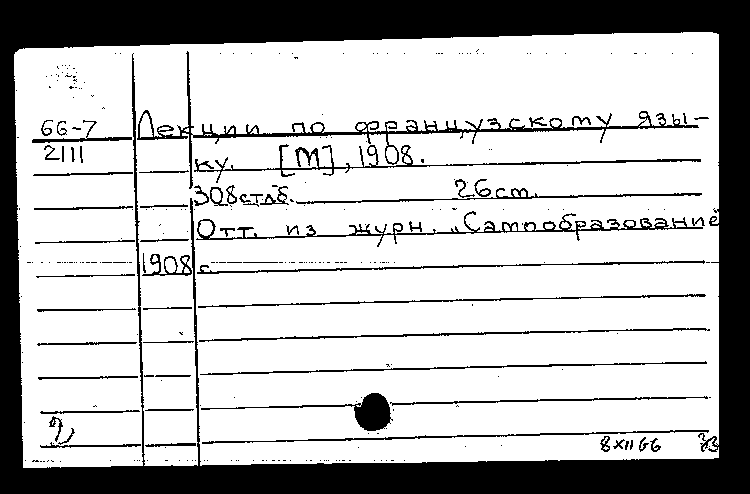 66-7 Лекции по французскому язы-
2111 ку. [М], 1908.
308стлб. 26см.
Отт. из журн. „Самообразование"
1908 г.
2
8 XII 66